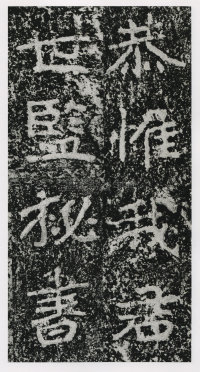 恭惟我君
世監秘書